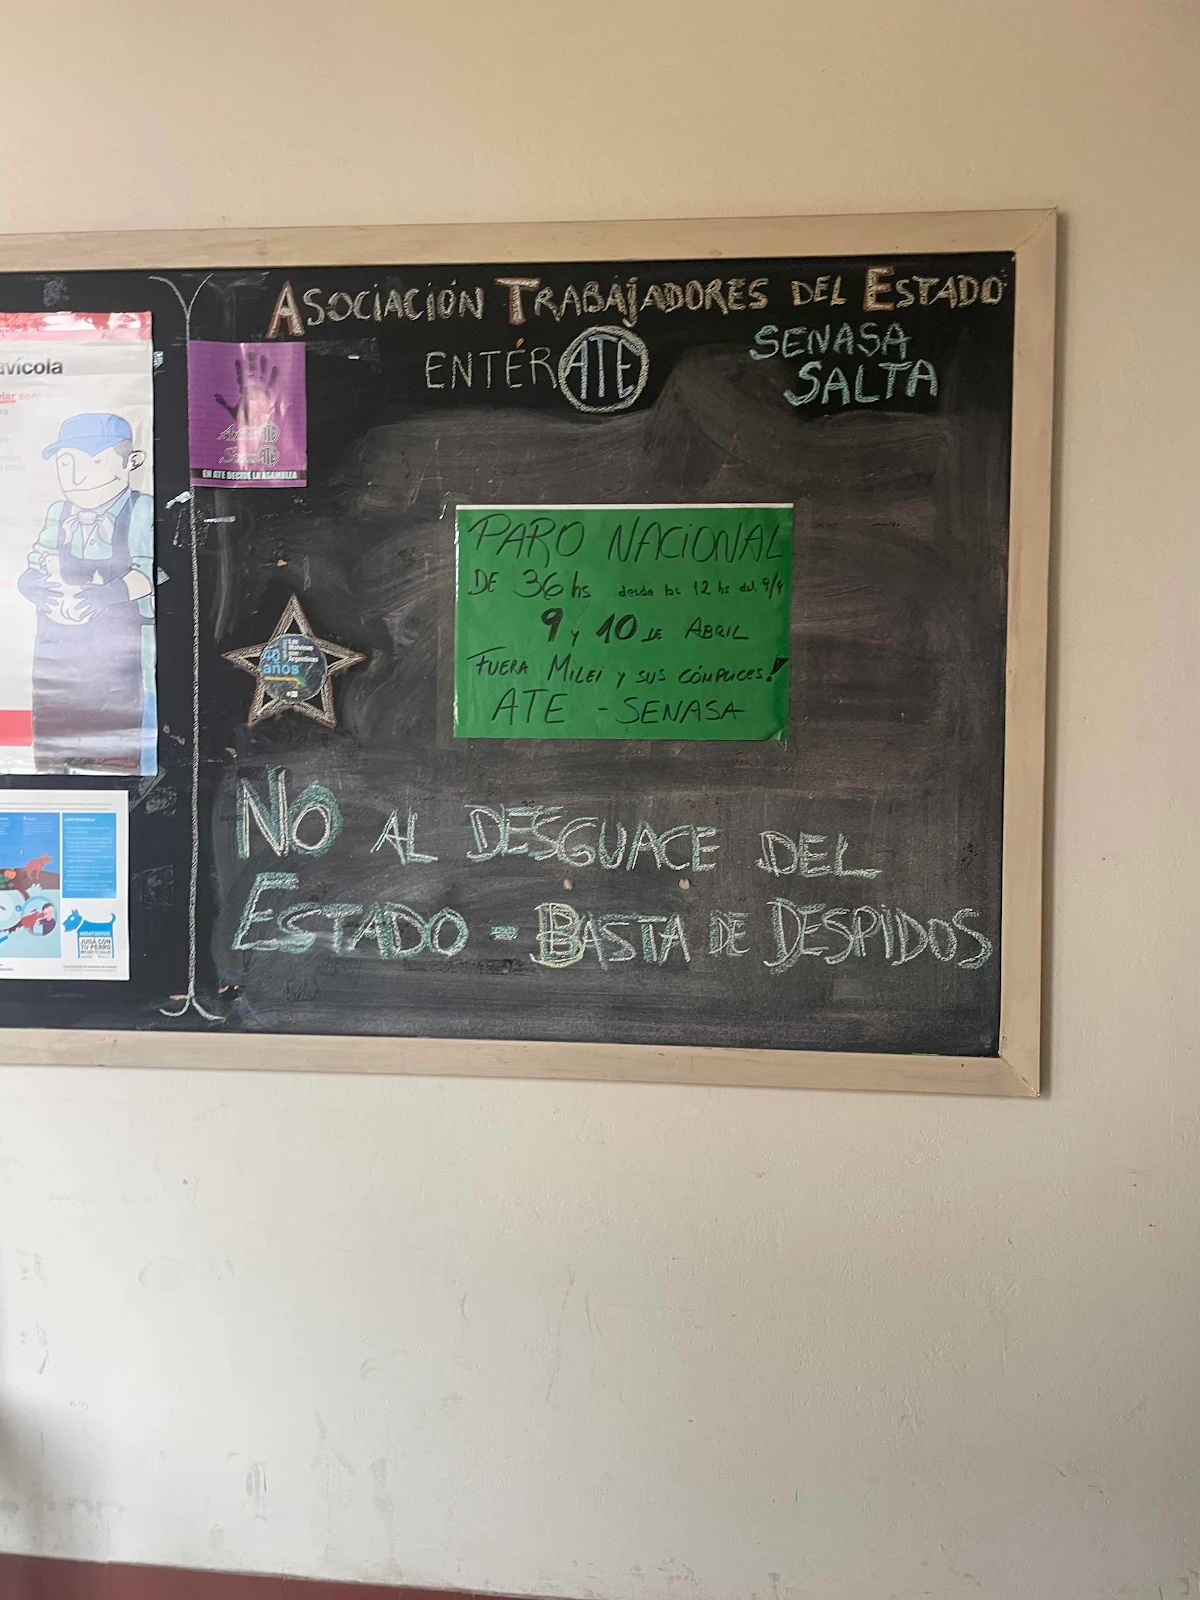 ASOCIACIÓN TRABAJADORES DEL ESTADO
ENTÉRATE
SENASA
SALTA
avícola
EN ATE DECIDE LA ASAMBLEA
PARO NACIONAL
DE 36 hs desde las 12 hs del 9/4
9 y 10 DE ABRIL
FUERA MILEI Y SUS CÓMPLICES!
ATE - SENASA
40 años
Las Malvinas son Argentinas
NO AL DESGUACE DEL
ESTADO - BASTA DE DESPIDOS
JUGÁ CON
TU PERRO